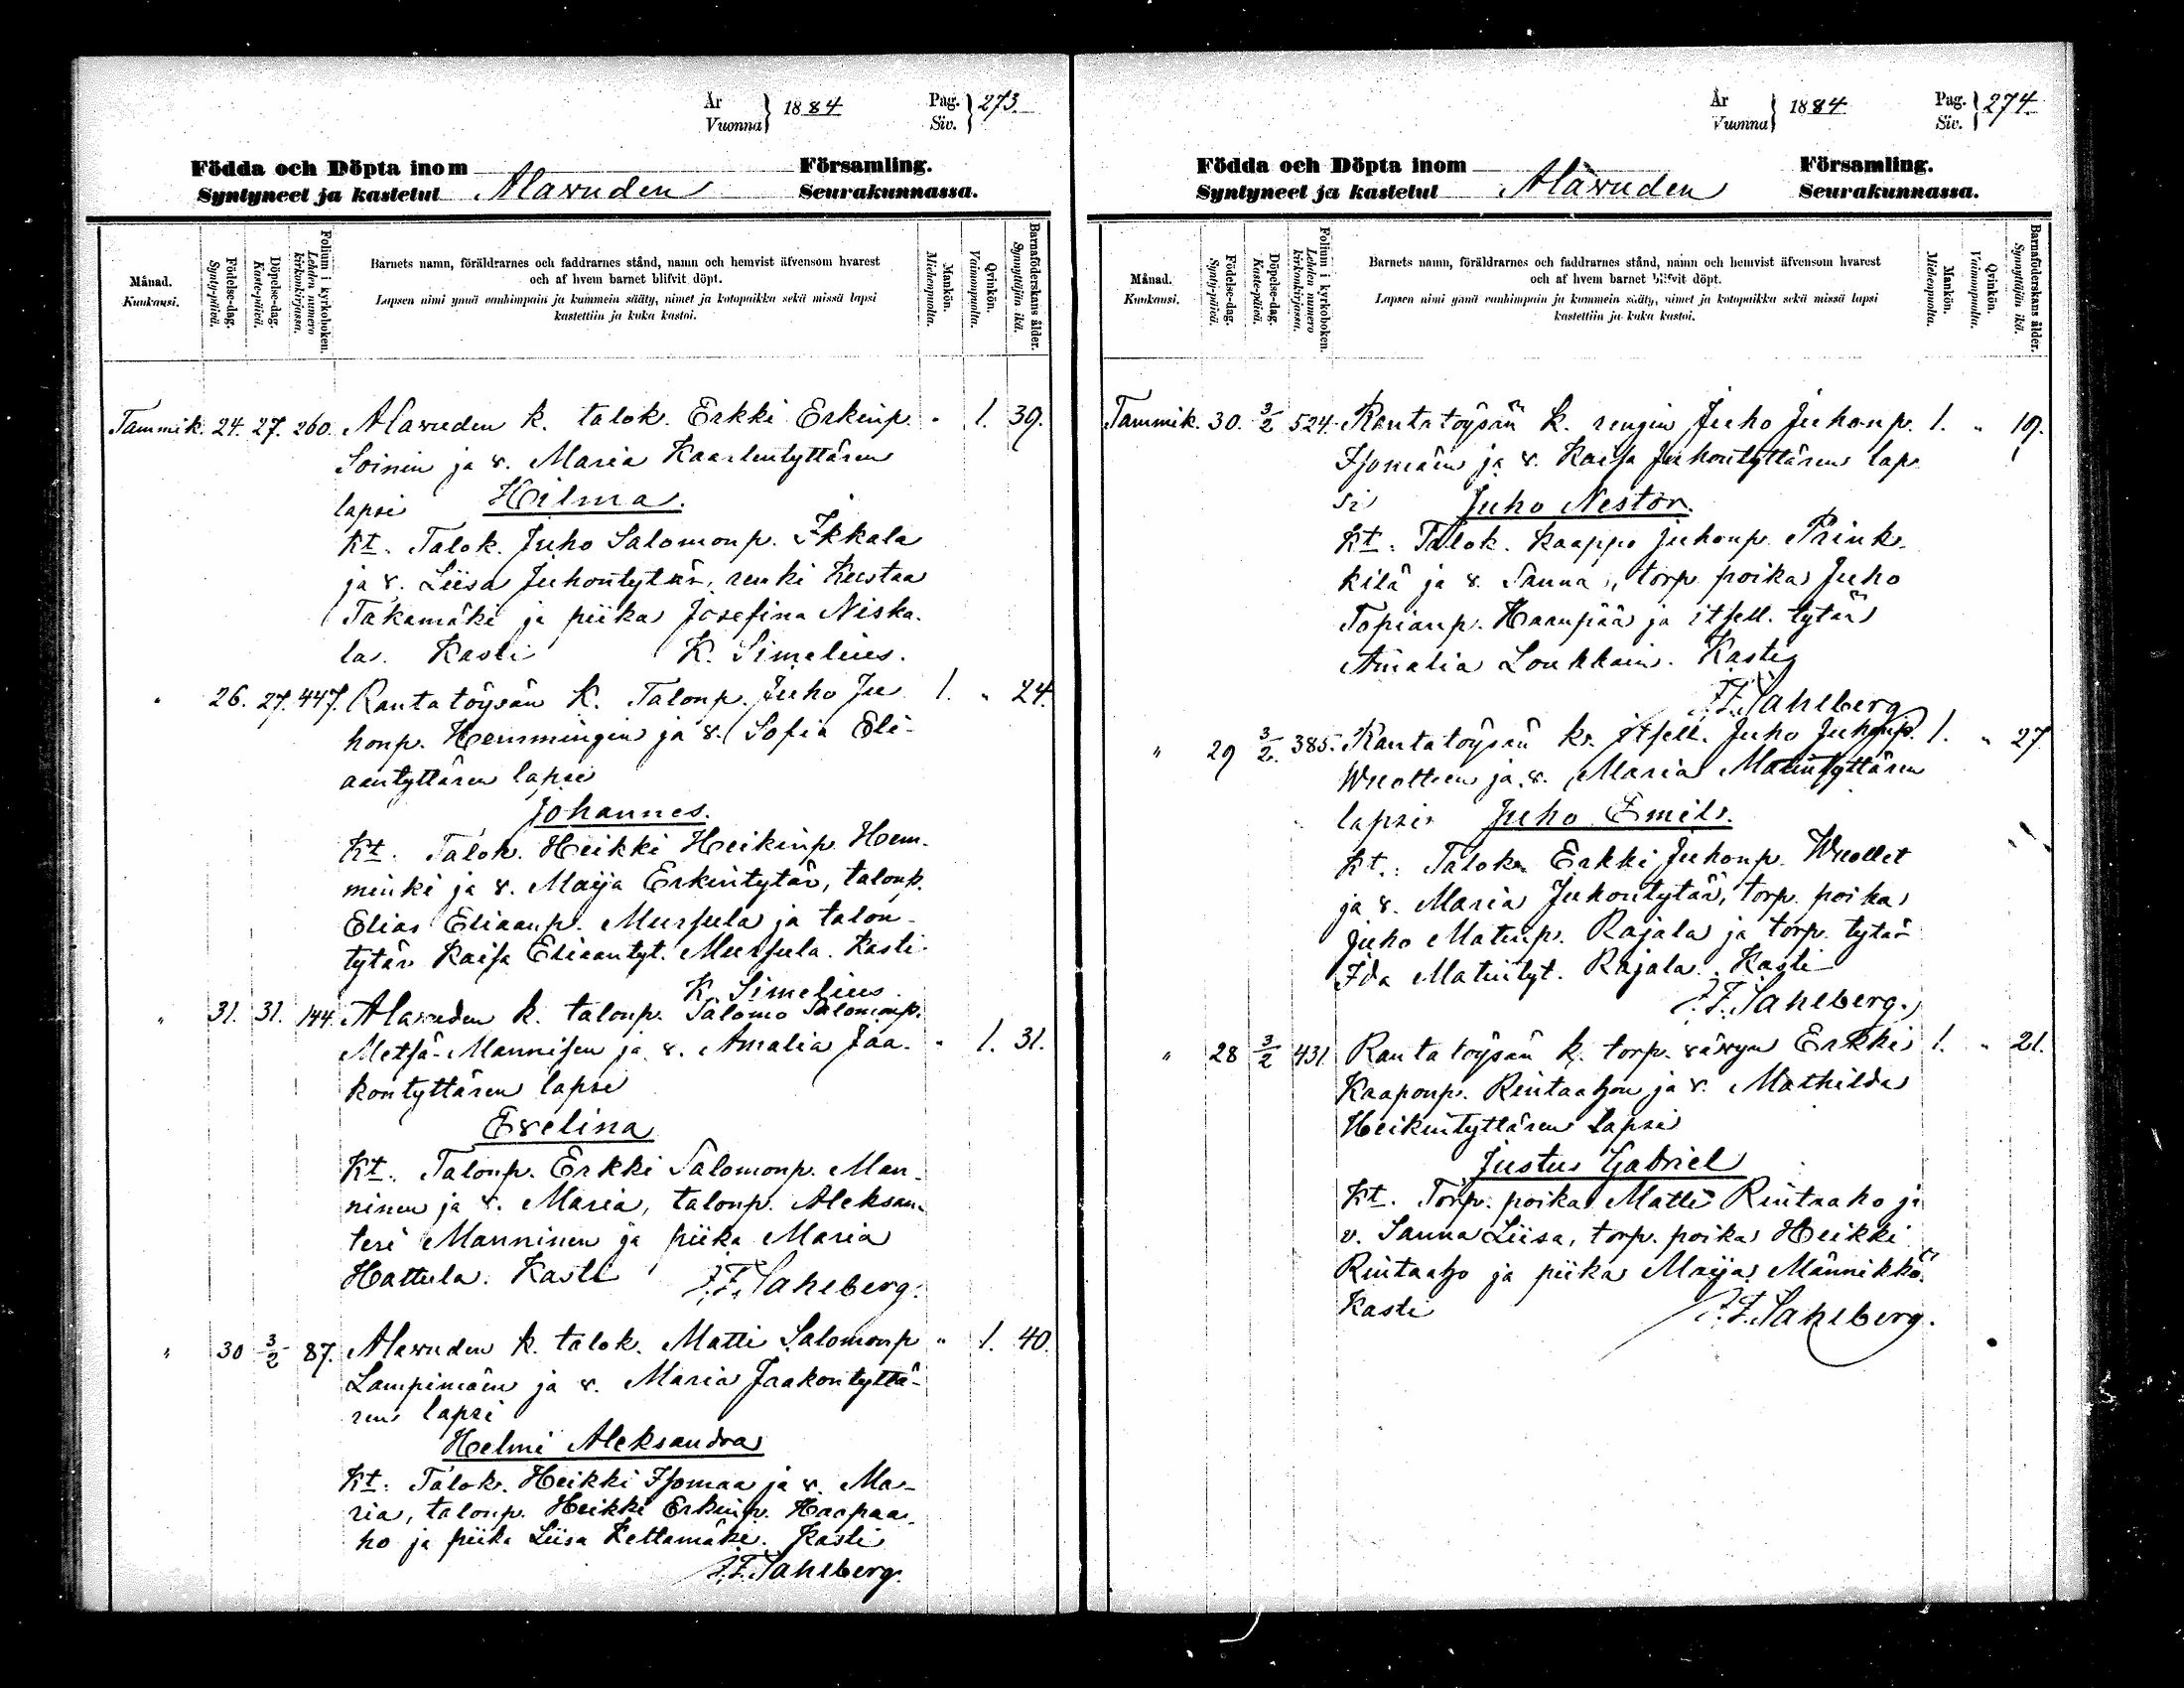 År
Vuonna } 1884 Pag.
Siv. } 273.
Födda och Döpta inom Församling.
Syntyneet ja kastetut Alavuden Seurakunnassa.
Månad.
Kuukausi.
Födelse-dag.
Synty-päivä.
Döpelse-dag.
Kaste-päivä.
Folium i kyrkoboken.
Lehden numero kirkonkirjassa.
Barnets namn, föräldrarnes och faddrarnes stånd, namn och hemvist äfvensom hvarest
och af hvem barnet blifvit döpt.
Lapsen nimi ynnä vanhimpain ja kummein sääty, nimet ja kotopaikka sekä missä lapsi
kastettiin ja kuka kastoi.
Mankön.
Miehenpuolta.
Qvinkön.
Vaimonpuolta.
Barnaföderskans ålder.
Synnyttäjän ikä.
Tammik. 24. 27. 260. Alavuden k. talok. Erkki Erkinp. " 1. 39.
Soinin ja v. Maria Kaarlentyttären
lapsi Hilma.
Kt. Talok. Juho Salomonp. Ikkala
ja v. Liisa Juhontytär, renki Kustaa
Takamäki ja piika Josefina Niska-
la. Kasti K. Simelius.
" 26. 27. 447. Rantatöysän k. Talonp. Juho Ju- 1. " 24.
honp. Hemmingin ja v. Sofia Eli-
aantyttären lapsi
Johannes.
Kt. Talok. Heikki Heikinp. Hem-
minki ja v. Maija Erkintytär, talonp.
Elias Eliaanp. Mursula ja talon-
tytär Kaisa Eliaantyt. Mursula. Kasti
K. Simelius.
" 31. 31. 144. Alavuden k. talonp. Salomo Salomonp.
Metsä-Mannisen ja v. Amalia Jaa- " 1. 31.
kontyttären lapsi
Evelina
Kt. Talonp. Erkki Salomonp. Man-
ninen ja v. Maria, talonp. Aleksan-
teri Manninen ja piika Maria
Hattula. Kasti J.F. Sahlberg.
" 30 3/2 87. Alavuden k. talok. Matti Salomonp " 1. 40.
Lampimäen ja v. Maria Jaakontyttä-
ren lapsi
Helmi Aleksandra
Kt. Talok. Heikki Isomaa ja v. Ma-
ria, talonp. Heikki Erkinp. Haapaa-
ho ja piika Liisa Kettamäki. Kasti
J.F. Sahlberg.
År
Vuonna } 1884 Pag.
Siv. } 274.
Födda och Döpta inom Församling.
Syntyneet ja kastetut Alavuden Seurakunnassa.
Månad.
Kuukausi.
Födelse-dag.
Synty-päivä.
Döpelse-dag.
Kaste-päivä.
Folium i kyrkoboken.
Lehden numero kirkonkirjassa.
Barnets namn, föräldrarnes och faddrarnes stånd, namn och hemvist äfvensom hvarest
och af hvem barnet blifvit döpt.
Lapsen nimi ynnä vanhimpain ja kummein sääty, nimet ja kotopaikka sekä missä lapsi
kastettiin ja kuka kastoi.
Mankön.
Miehenpuolta.
Qvinkön.
Vaimonpuolta.
Barnaföderskans ålder.
Synnyttäjän ikä.
Tammik. 30. 3/2 524. Rantatöysän k. rengin Juho Juhonp. 1. " 19.
Isomäen ja v. Kaisa Juhontyttären lap
si Juho Nestor.
Kt. Talok. Kaappo Juhonp. Prink-
kilä ja v. Sanna, torp. poika Juho
Topianp. Haanpää ja itsell. tytär
Amalia Loukkain. Kasti
J.F. Sahlberg
" 29 3/2. 385. Rantatöysän k. itsell. Juho Juhonp. 1. " 27
Wuolteen ja v. Maria Matintyttären
lapsi Juho Emil.
Kt.: Talok. Erkki Juhonp. Wuollet
ja v. Maria Juhontytär, torp. poika
Juho Matinp. Rajala ja torp. tytär
Ida Matintyt. Rajala. Kasti
J.F. Sahlberg.
" 28 3/2 431. Rantatöysän k. torp. vävyn Erkki 1. " 21.
Kaaponp. Rintaahon ja v. Mathilda
Heikintyttären lapsi
Justus Gabriel
Kt. Torp. poika Matti Rintaaho ja
v. Sanna Liisa, torp. poika Heikki
Rintaaho ja piika Maija Männikkö.
Kasti J.F. Sahlberg.